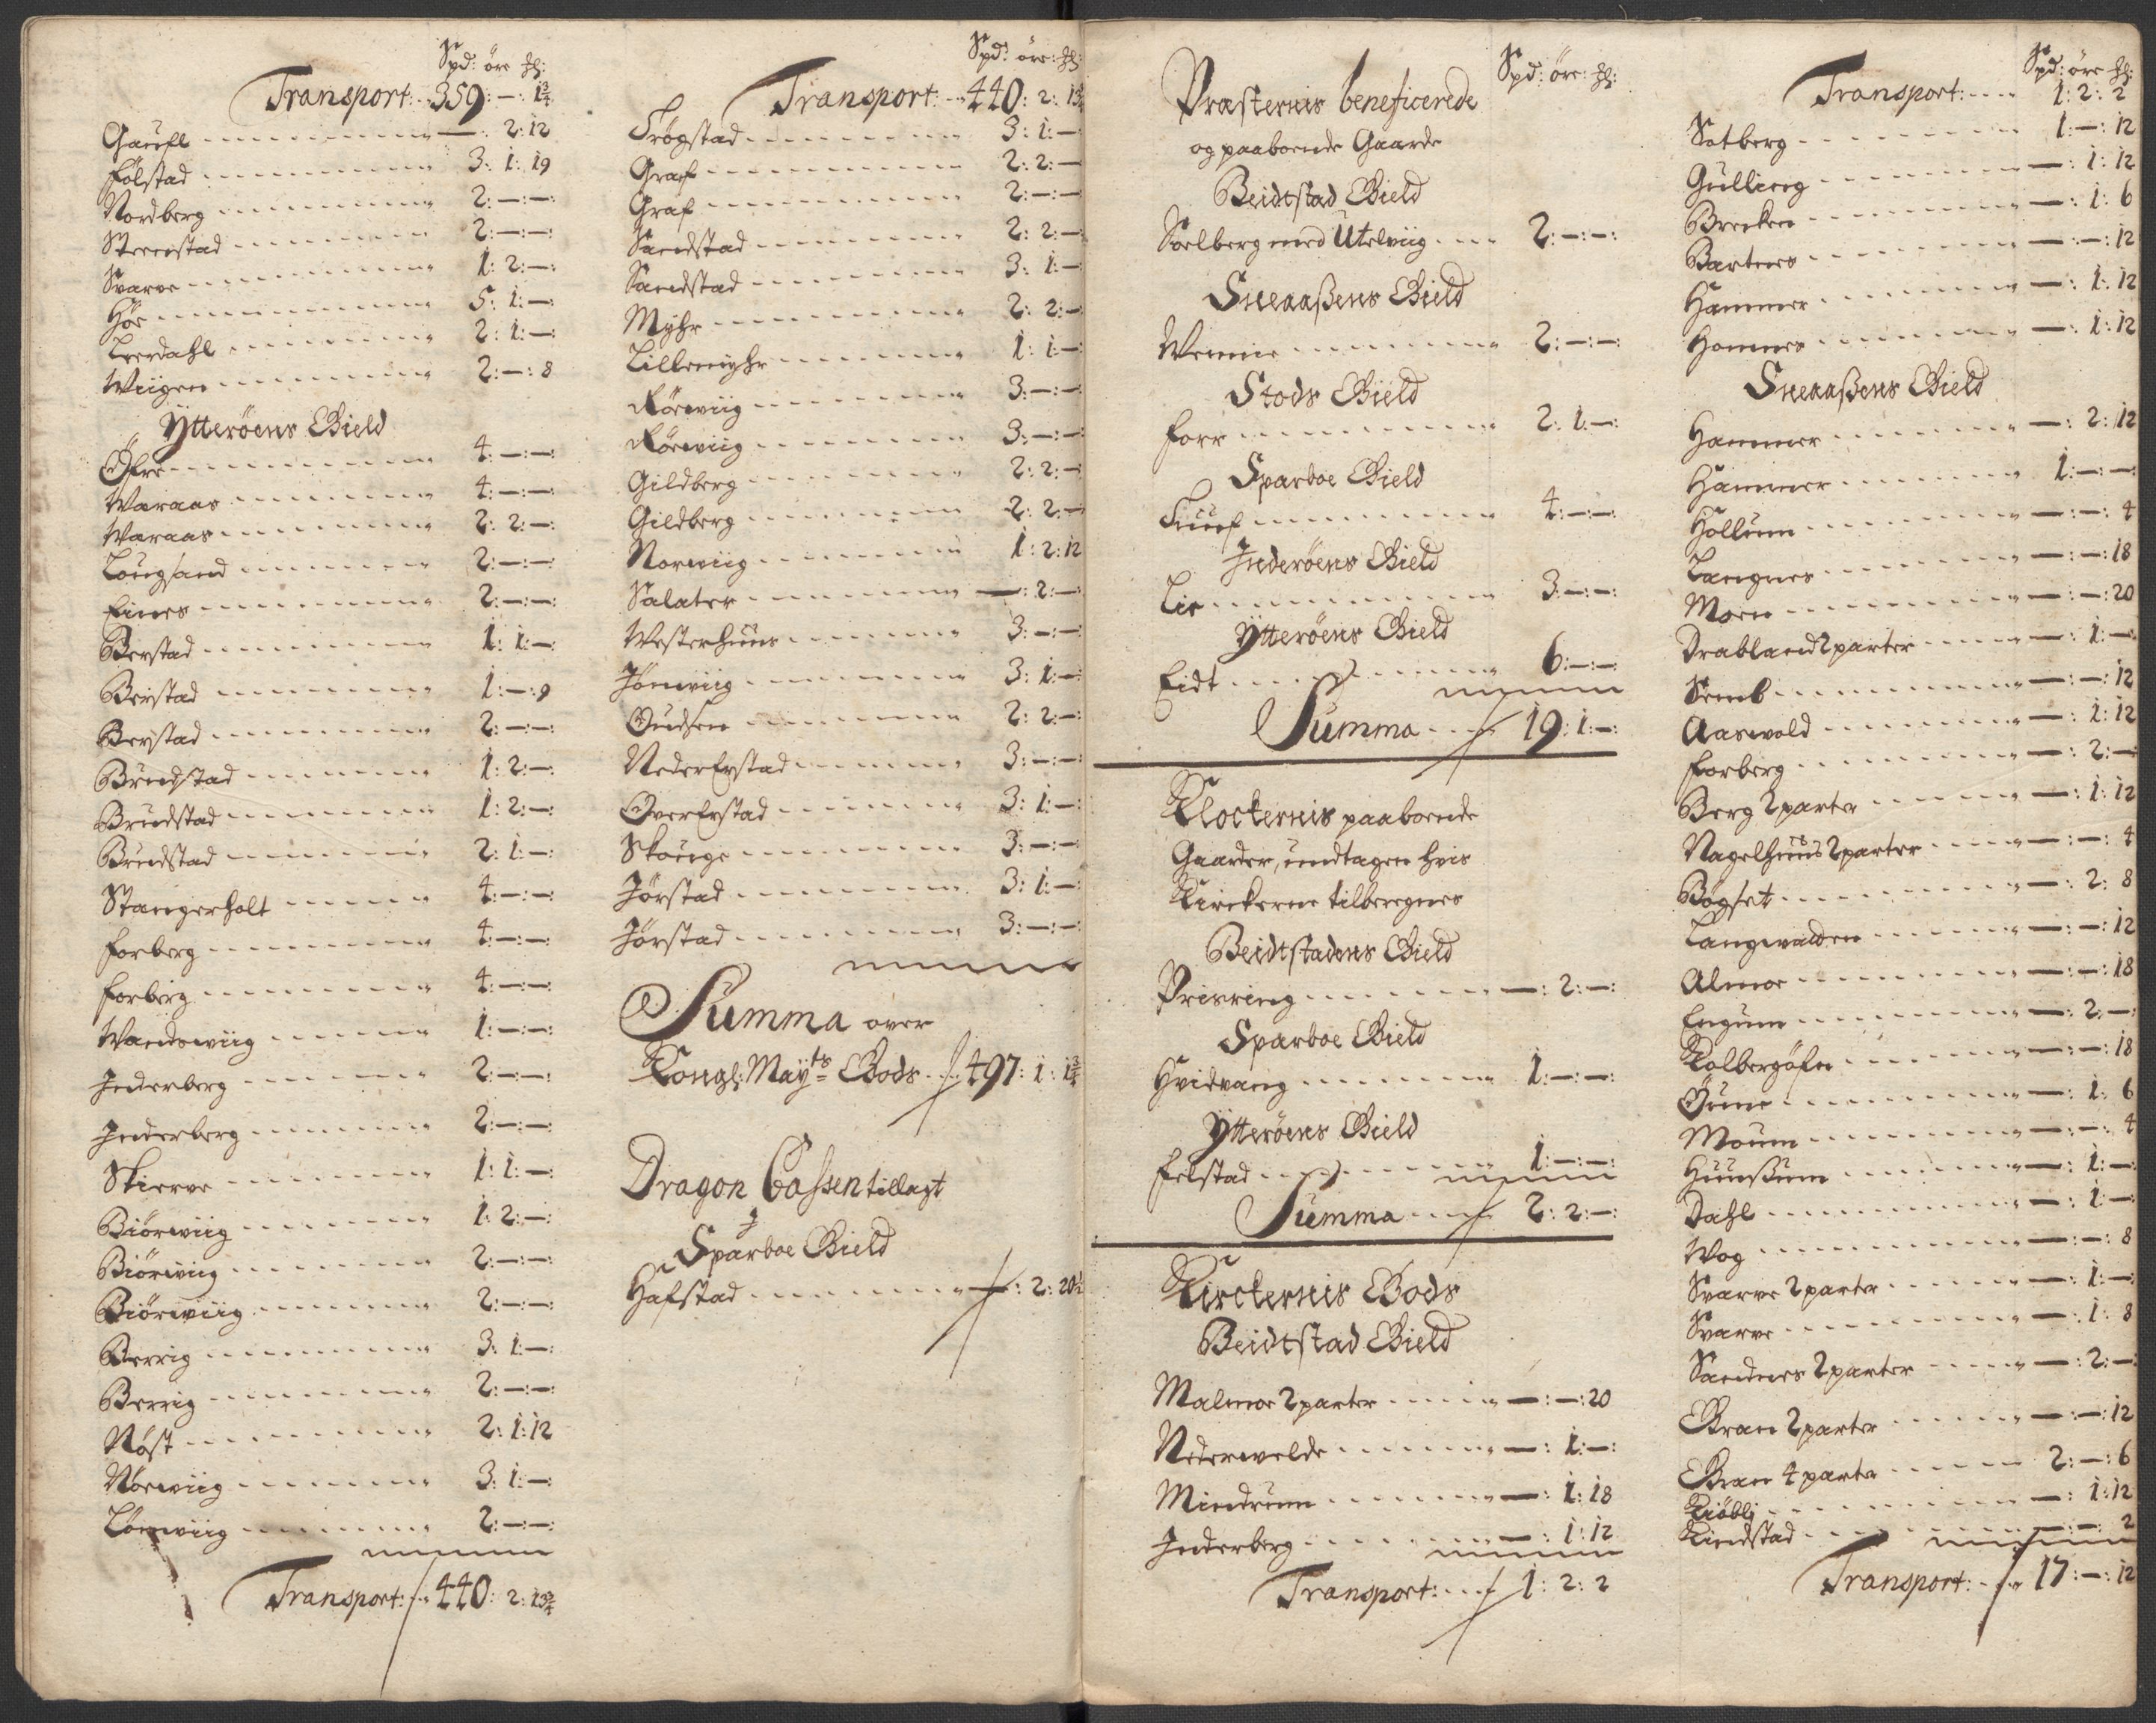 Spd: öre ȝl:
Transport: 359: —: 1¾
Gaufl —: 2: 12
Følstad 3: 1: 19
Nordberg 2: —: —:
Steenstad 2: —: —:
Svarve 1: 2: —:
Høe 5: 1: —:
Leerdahl 2: 1: —:
Wiigen 2: —: 8
Ytterøens Gield
Øfre 4: —: —:
Waraas 4: —: —:
Waraas 2: 2: —:
Lougsand 2: —: —:
Eines 2: —: —:
Berstad 1: 1: —:
Berstad 1: —: 9
Berstad 2: —: —:
Brudstad 1: 2: —:
Brudstad 1: 2: —:
Brudstad 2: 1: —:
Stangerholt 4: —: —:
Forberg 4: —: —:
Forberg 4: —: —:
Wandswiig 1: —: —:
Inderberg 2: —: —:
Inderberg 2: —: —:
Skierve 1: 1: —:
Biörwiig 1: 2: —:
Biörwiig 2: —: —:
Biörwiig 2: —: —:
Berrig 3: 1: —:
Berrig 2: —: —:
Røst 2: 1: 12
Nörwiig 3: 1: —:
Lönwiig 2: —: —:
Transport: 440: 2: 13¾
Spd: öre: ȝl:
Transport: 440: 2: 13¾
Trøgstad 3: 1: —
Graf 2: 2: —
Graf 2: —: —:
Sandstad 2: 2: —
Sandstad 3: 1: —
Myhr 2: 2: —
Lillemyhr 1: 1: —:
Rörwiig 3: —: —:
Rörwiig 3: —: —:
Gildberg 2: 2: —:
Gildberg 2: 2: —
Norwiig 1: 2: 12
Salater —: 2: —:
Westerhuus 3: —: —:
Jönwiig 3: 1: —:
Oudsen 2: 2: —:
Neder Erstad 3: —: —:
Over Erstad 3: 1: —:
Skouge 3: —: —:
Jörstad 3: 1: —:
Jörstad 3: —: —:
Summa over
Kongl: Mayts Gods 497: 1: 1¾
Dragon Cassen tillagt
I
Sparboe Gield
Hafstad —: 2: 20½
Spd: öre: ȝl:
Præsternis beneficerede
og paaboende Gaarde
Beidtstad Gield
Soelberg med Utelviig 2: —: —:
Sneaaßens Gield
Wennie 2: —: —:
Stods Gield
Forr 2: 1: —:
Sparboe Gield
Tuuf 4: —: —:
Inderöens Gield
Lie 3: —: —:
Ytterøens Gield
Eidt 6: —: —:
Summa 19: 1: —:
Klockernis paaboende
Gaarder, undtagen hvis
Kirckerne tilberegnes
Beidtstadens Gield
Prisring —: 2: —:
Sparboe Gield
Hvidvang 1: —: —:
Ytterøens Gield
Felstad 1: —: —:
Summa 2: 2: —:
Kirckernis Gods
Beidtstad Gield
Malmoe 2 parter —: —: 20
Nederwelde —: 1: —:
Mindrum —: 1: 18
Inderberg —: 1: 12
Transport: 1: 2: 2
Spd: öre ȝl:
Transport: 1: 2: 2
Solberg 1: —: 12
Gulliong —: 1: 12
Brecken —: 1: 6
Bartnes —: —: 12
Hammer —: 1: 12
Hammer —: 1: 12
Sneaaßens Gield
Hammer —: 2: 12
Hammer 1: —: —:
Hollum —: —: 4
Langnes —: —: 18
Moen —: —: 20
Drabland 2 parter —: 1: —:
Semb —: —: 12
Aarwold —: 1: 12
Forberg —: 2: —
Berg 2 parter —: 1: 12
Nagelhuus 2 parter —: —: 4
Bøgset —: 2: 8
Langwalden —: —: 12
Almoe —: —: 18
Engum —: 2: —:
Kolbergöfen —: —: 18
Öune —: 1: 6
Moum —: —: 4
Huunßum —: 1: —:
Dahl —: 1: —
Wog —: —: 8
Svarve 2 parter —: 1: —:
Svarve —: 1: 8
Sandnes 2 parter —: 2: —
Gran 2 parter —: —: 12
Gran 4 parter 2: —: 6
Kiöbli —: 1: 12
Kindstad —: —: 2
Transport: 17: —: 12